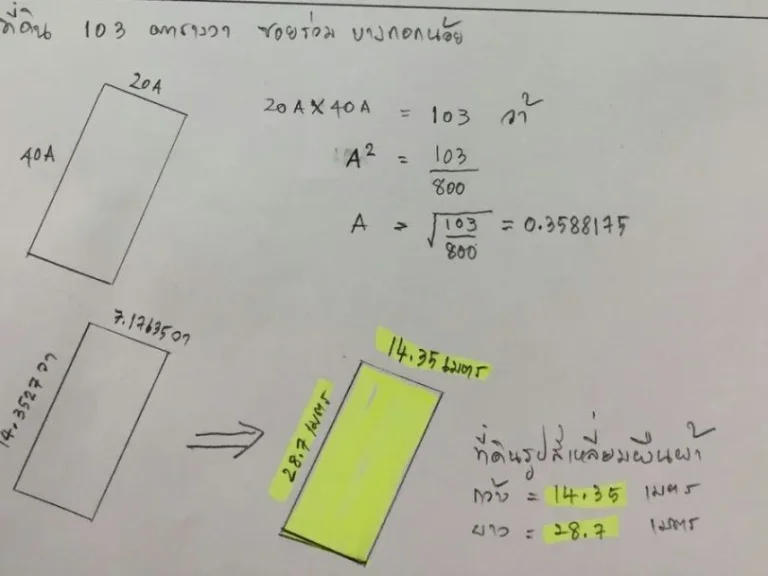 ที่ดิน 103 ตารางวา ซอยร่วม บางกอกน้อย
20A
40A
20A X 40A = 103 วา²
A² = 103/800
A = √103/800 = 0.3588175
7.17635 วา
14.3527 วา
14.35 เมตร
28.7 เมตร
ที่ดินรูปสี่เหลี่ยมผืนผ้า
กว้าง = 14.35 เมตร
ยาว = 28.7 เมตร